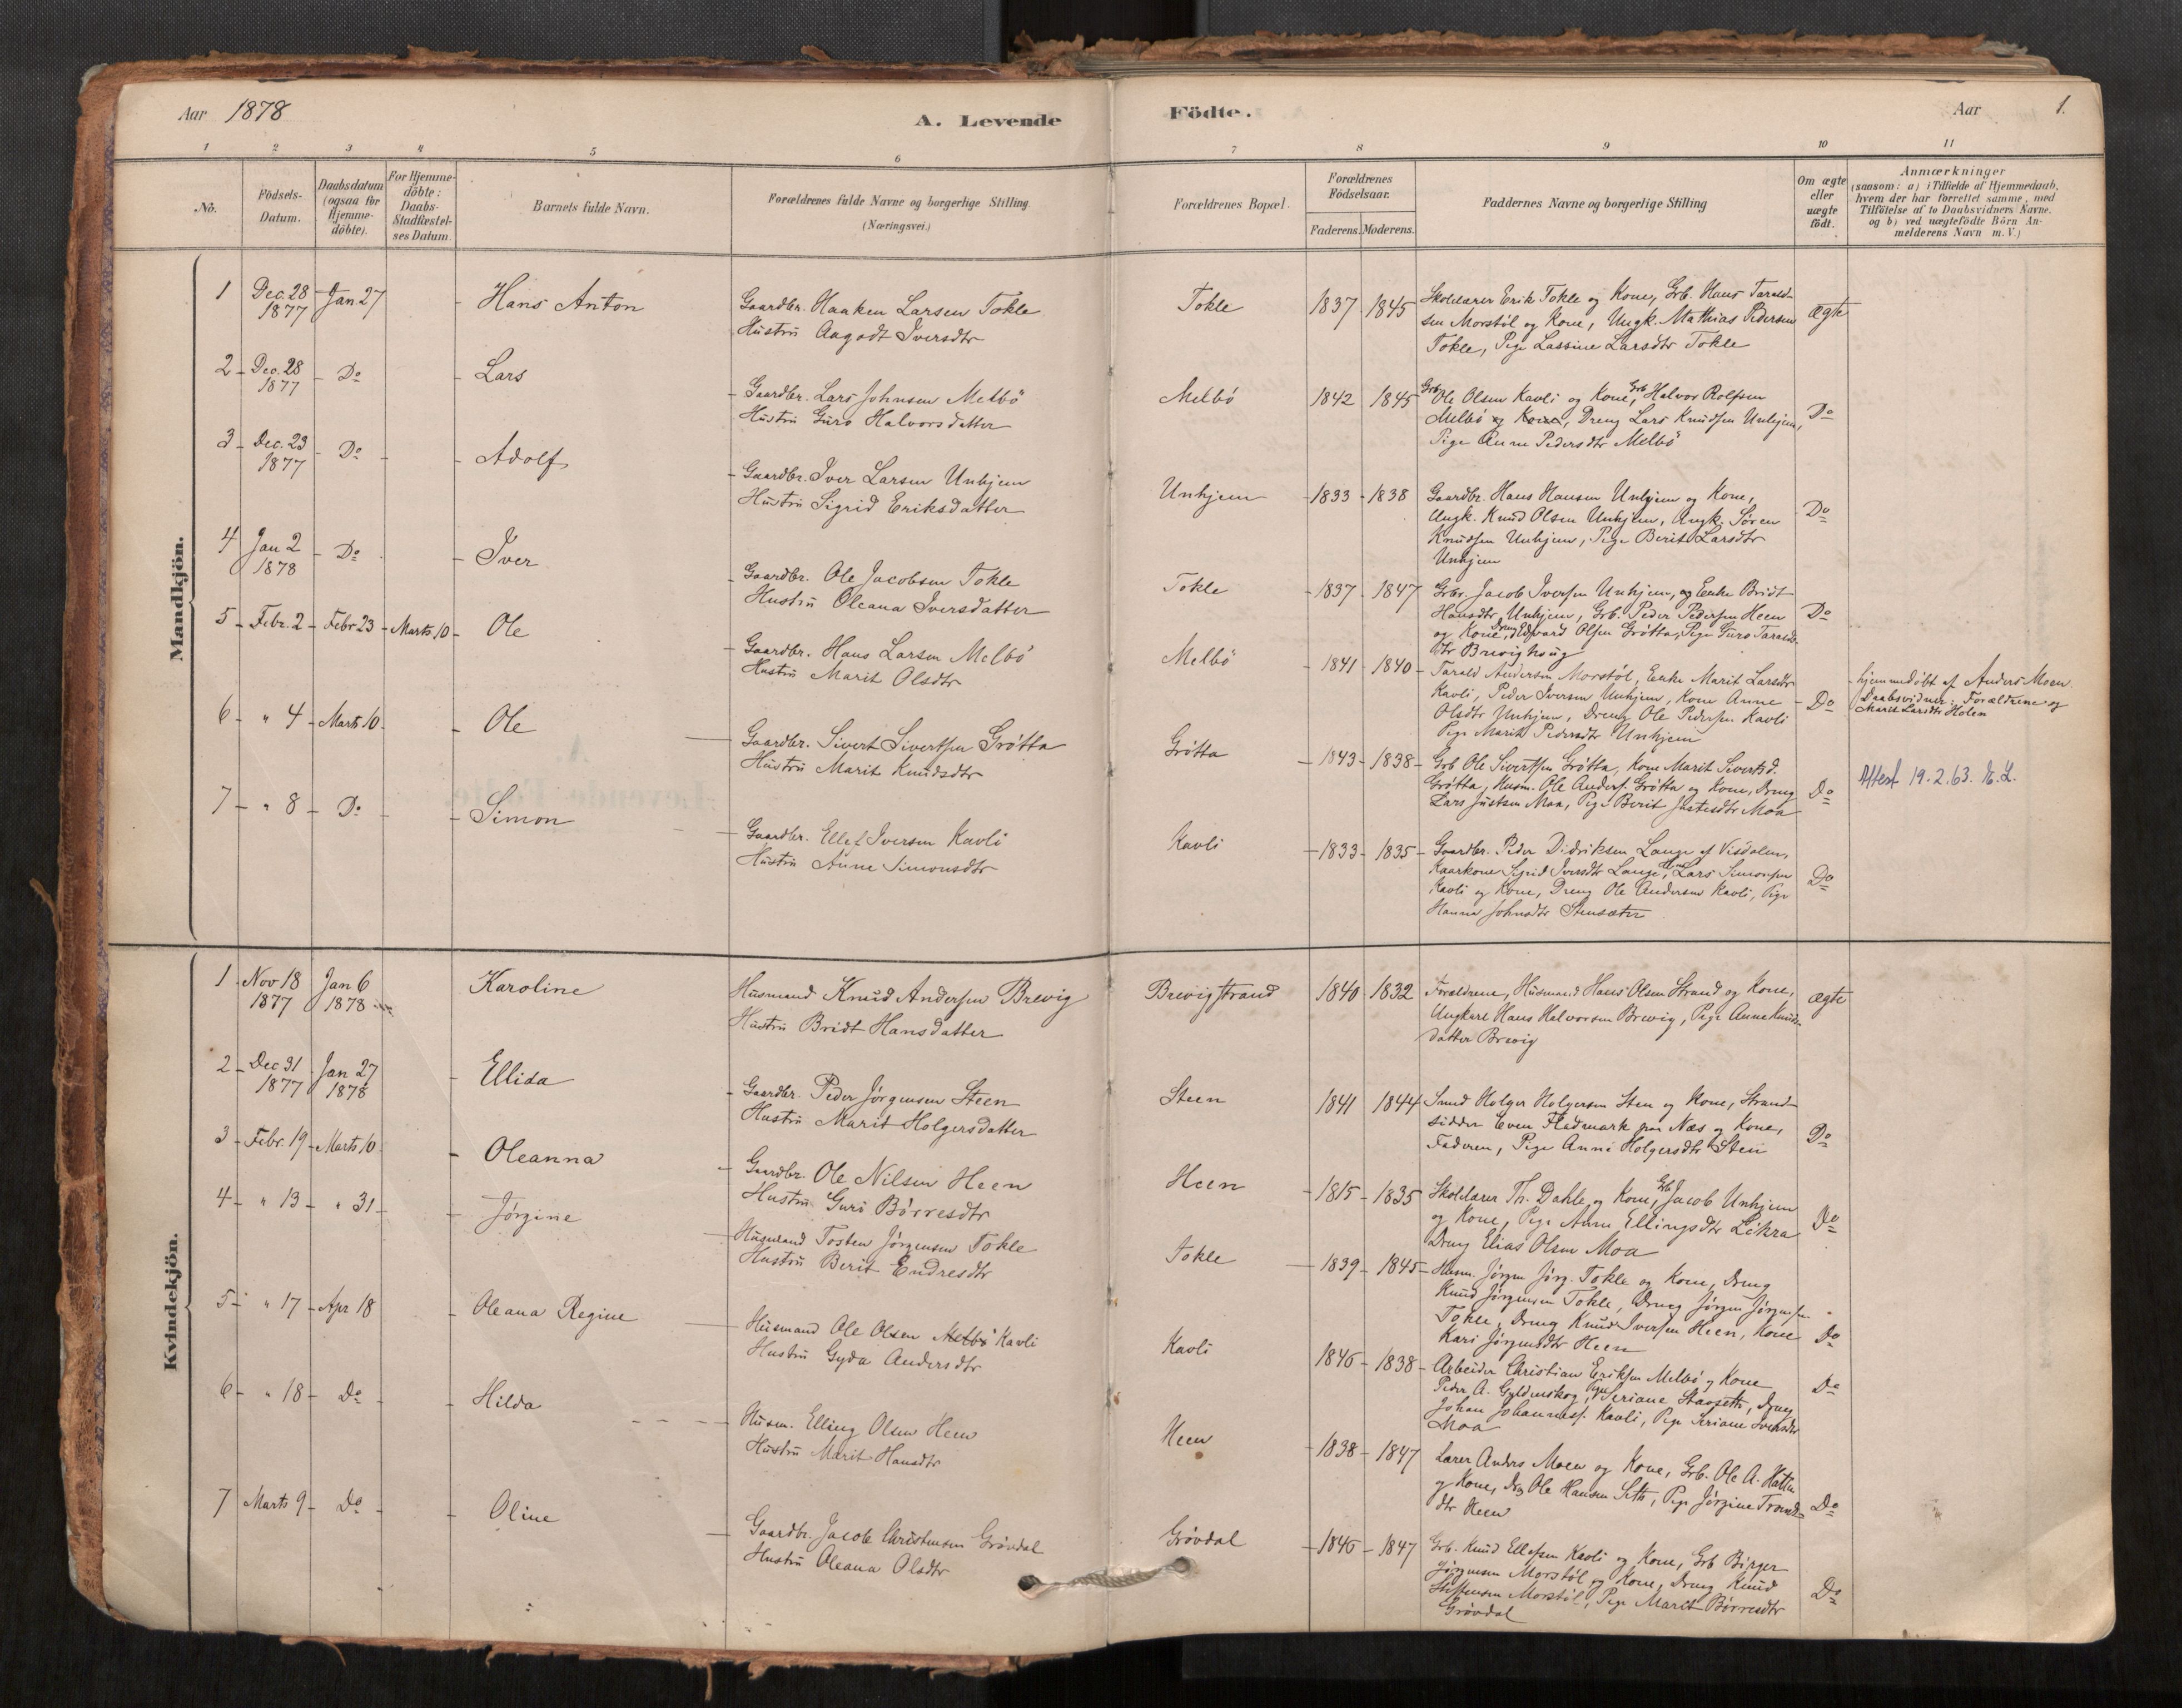 Aar 1878
A. Levende Födte.
Aar 1.
1 2 3 4 5 6 7 8 9 10 11
No.
Födsels-Datum.
Daabsdatum (ogsaa for Hjemme-döbte).
For Hjemme-döbte: Daabs-Stadfæstel-ses Datum.
Barnets fulde Navn.
Forældrenes fulde Navne og borgerlige Stilling (Næringsvei.)
Forældrenes Bopæl.
Forældrenes Födselsaar.
Faderens. Moderens.
Faddernes Navne og borgerlige Stilling
Om ægte eller uægte födt.
Anmærkninger
(saasom: a) i Tilfælde af Hjemmedaab,
hvem der har forrettet samme, med
Tilföielse af to Daabsvidners Navne.
og b) ved uægtefödte Börn An-
melderens Navn m. V.)
Mandkjön.
1 Dec. 28 1877 Jan 27 Hans Anton
Gaardbr. Haaken Larsen Tokle
Hustru Aagodt Iversdtr
Tokle 1837 1845
Skolelærer Erik Tokle og Kone, Grb. Hans Tarald-
sen Morstöl og Kone, Ungk. Mathias Pedersen
Tokle, Pige Lassine Larsdtr Tokle
ægte
2 Dec. 28 1877 Do Lars
Gaardbr. Lars Johnsen Melbö
Hustru Guro Halvorsdatter
Melbö 1842 1845
Grb. Ole Olsen Kavli og Kone, Grb. Halvor Rolfsen
Melbö og Kone, Dreng Lars Knudsen Unhjem,
Pige Anne Pedersdtr Melbö
Do
3 Dec. 23 1877 Do Adolf
Gaardbr. Iver Larsen Unhjem
Hustru Sigrid Eriksdatter
Unhjem 1833 1838
Gaardbr. Hans Hansen Unhjem og Kone,
Ungk. Knud Olsen Unhjem, Ungk. Sören
Knudsen Unhjem, Pige Berit Larsdtr
Unhjem
Do
4 Jan 2 1878 Do Iver
Gaardbr. Ole Jacobsen Tokle
Hustru Oleana Iversdatter
Tokle 1837 1847
Grbr. Jacob Iversen Unhjem, og Enke Bridt
Hansdtr Unhjem, Grb. Peder Pedersen Heen
og Kone, Dreng Edvard Olsen Grötta, Pige Guro Taralds-
dtr Brevighaug
Do
5 Febr. 2 Febr 23 Marts 10 Ole
Gaardbr. Hans Larsen Melbö
Hustru Marit Olsdtr
Melbö 1841 1840
Tarald Andersen Morstöl, Enke Marit Larsdtr
Kavli, Peder Iversen Unhjem, Kone Anne
Olsdtr Unhjem, Dreng Ole Pedersen Kavli
Pige Marit Pedersdtr Unhjem
Do
hjemmedöbt af Anders Moen
Daabsvidner: Forældrene og
Marit Larsdtr Holen
6 " 4 Marts 10. Ole
Gaardbr. Sivert Sivertsen Grötta
Hustru Marit Knudsdtr
Grötta 1843 1838
Grb Ole Sivertsen Grötta, Kone Marit Sivertsd.
Grötta, Husm. Ole Anders. Grötta og Kone, Dreng
Lars Justsen Moa, Pige Berit Justesdtr Moa
Do
Attest 19.2.63. K.L.
7 " 8 Do Simon
Gaardbr. Ellef Iversen Kavli
Hustru Anne Simonsdtr
Kavli 1833 1835
Gaardbr. Peder Didriksen Lange af Visdalen,
Kaarkone Sigrid Iversdtr Lange, Lars Simonsen
Kavli og Kone, Dreng Ole Andersen Kavli, Pige
Hanna Johnsdtr Stensæter
Do
Kvindekjön.
1 Nov 18 1877 Jan 6 1878 Karoline
Husmand Knud Andersen Brevig
Hustru Bridt Hansdatter
Brevigstrand 1840 1832
Forældrene, Husmand Hans Olsen Strand og Kone,
Ungkarl Hans Halvorsen Brevig, Pige Anne Knuds-
datter Brevig
ægte
2 Dec 31 1877 Jan 27 1878 Ellida
Gaardbr. Peder Jörgensen Steen
Hustru Marit Holgersdatter
Steen 1841 1844
Smed Holger Holgersen Sten og Kone, Strand-
sidder Even Flademark paa Næs og Kone,
Faderen, Pige Anne Holgersdtr Sten
Do
3 Febr. 19 Marts 10 Oleanna
Gaardbr. Ole Nilsen Heen
Hustru Guri Börresdtr
Heen 1815 1835
Skolelærer Th. Dahle og Kone, Grb. Jacob Unhjem
og Kone, Pige Anne Ellingsdtr Likra
Dreng Elias Olsen Moa
Do
4 " 13 " 31 Jörgine
Husmand Tosten Jörgensen Tokle
Hustru Berit Endresdtr
Tokle 1839 1845
Husm. Jörgen Jörg. Tokle og Kone, Dreng
Knud Jörgensen Tokle, Dreng Jörgen Jörgensen
Tokle, Dreng Knud Iversen Heen, Kone
Kari Jörgensdtr Heen
Do
5 " 17 Apr 18 Oleana Regine
Husmand Ole Olsen Melbö Kavli
Hustru Gyda Andersdtr
Kavli 1846 1838
Arbeider Christian Eriksen Melbö og Kone
Peder A. Gyldenskog, Pige Seriane Stavseth, Dreng
Johan Johanness. Kavli, Pige Seriane Iversdtr
Moa
Do
6 " 18 Do Hilda
Husm. Elling Olsen Heen
Hustru Marit Hansdtr
Heen 1838 1847
Lærer Anders Moen og Kone, Grb. Ole A. Hatlen
og Kone, Drg Ole Hansen Seth, Pige Jörgine Tronds-
dtr Heen
Do
7 Marts 9 Do Oline
Gaardbr. Jacob Christensen Grövdal
Hustru Oleana Olsdtr
Grövdal 1846 1847
Grb. Knud Ellefsen Kavli og Kone, Grb Birger
Jörgensen Morstöl og Kone, Dreng Knud
Steffensen Morstöl, Pige Marit Börresdtr
Grövdal
Do